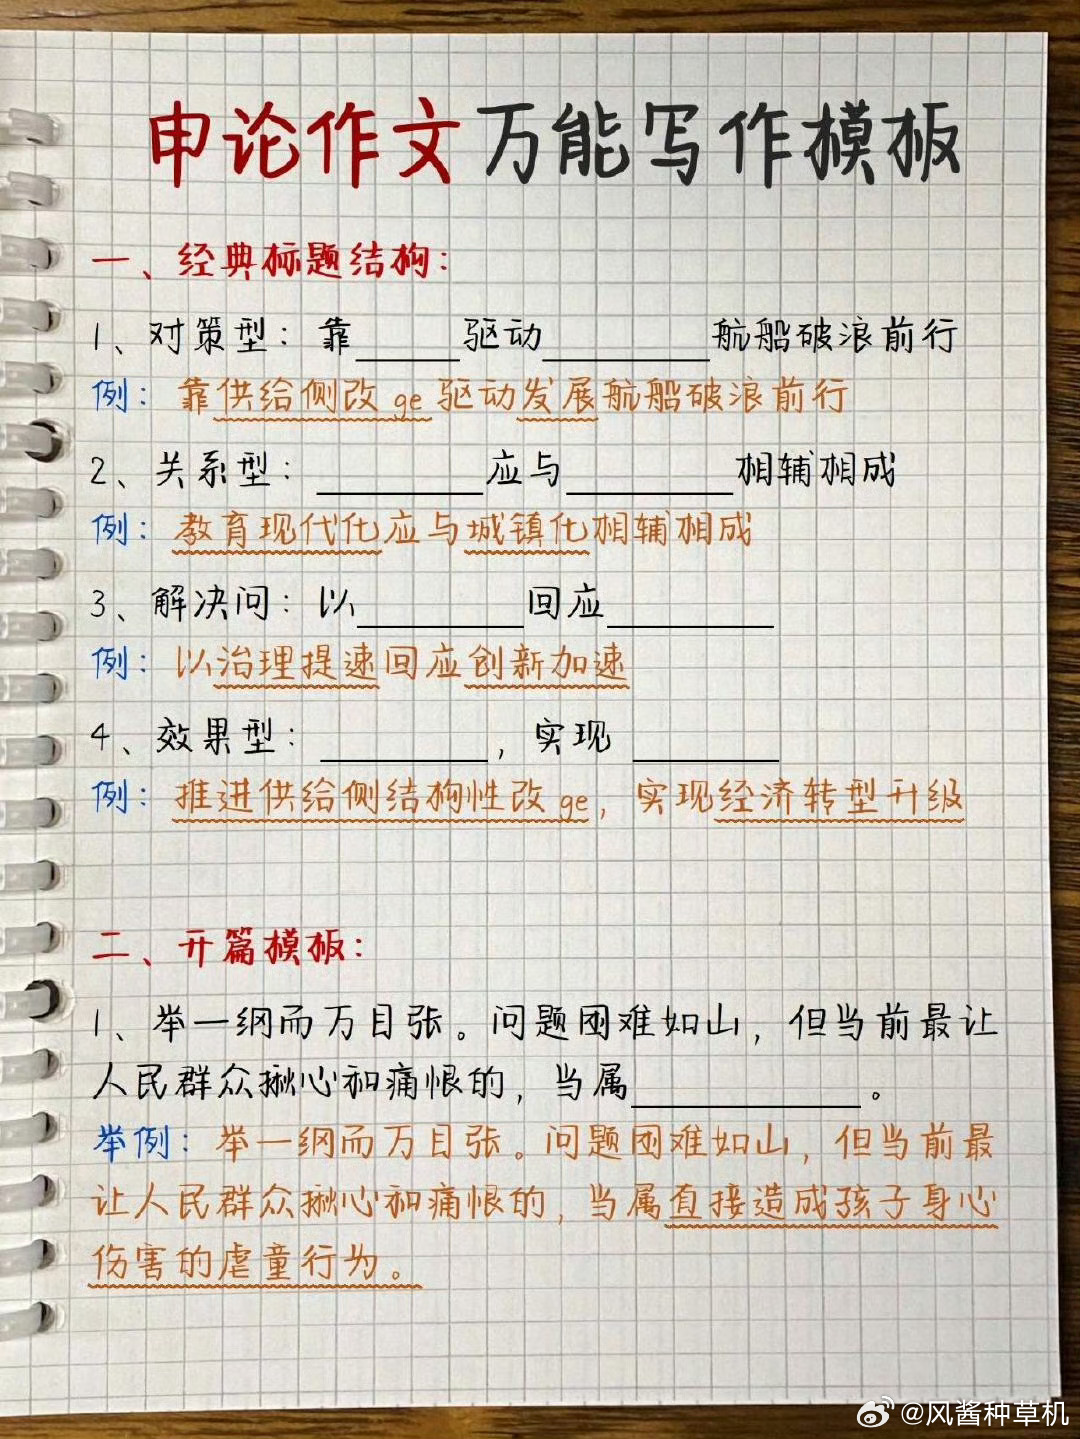 申论作文万能写作模板
一、经典标题结构：
1、对策型：靠______驱动__________航船破浪前行
例：靠供给侧改ge驱动发展航船破浪前行
2、关系型：__________应与__________相辅相成
例：教育现代化应与城镇化相辅相成
3、解决问：以__________回应__________
例：以治理提速回应创新加速
4、效果型：__________，实现__________
例：推进供给侧结构性改ge，实现经济转型升级
二、开篇模板：
1、举一纲而万目张。问题困难如山，但当前最让
人民群众揪心和痛恨的，当属______________。
举例：举一纲而万目张。问题困难如山，但当前最
让人民群众揪心和痛恨的，当属直接造成孩子身心
伤害的虐童行为。
@风酱种草机